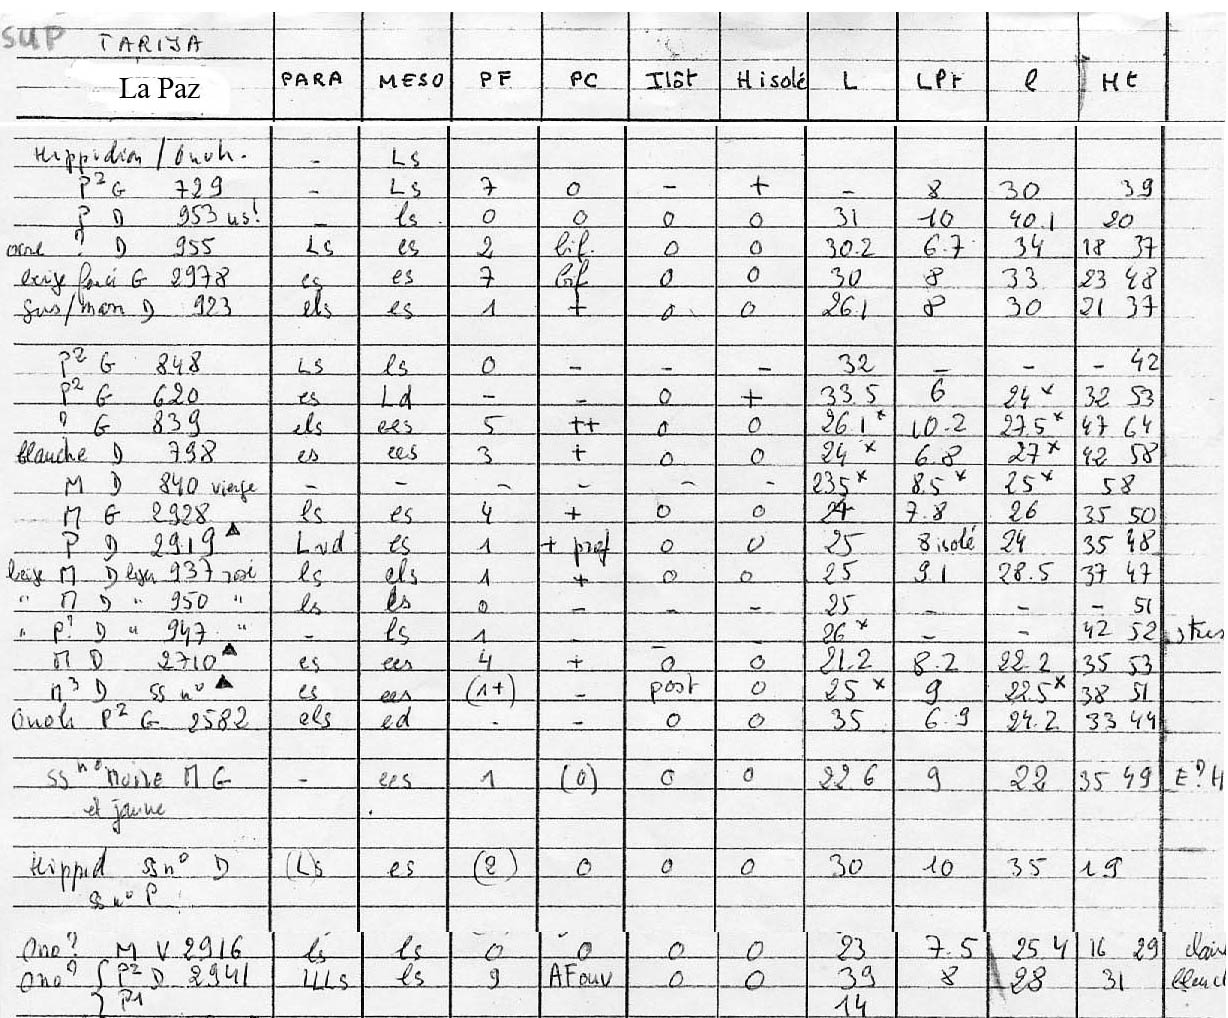 SUP TARIJA
La Paz PARA MESO PF PC Ilôt H isolé L LPr l Ht
Hippidion / Onoh. - Ls
P² G 729 - Ls 7 0 - + - 8 30 39
P D 953 us! - ls 0 0 0 0 31 10 40.1 20
ocre ? D 955 Ls es 2 bif. 0 0 30.2 6.7 34 18 37
beige foncé G 2978 es es 7 bif 0 0 30 8 33 23 48
D 923 els es 1 + 0 0 26.1 8 30 21 37
P² G 848 Ls ls 0 - - - 32 - - - 42
P² G 620 es Ld - - 0 + 33.5 6 24 x 32 53
? G 839 els ees 5 ++ 0 0 26.1 x 10.2 27.5 x 47 64
blanche D 798 es ees 3 + 0 0 24 x 6.8 27 x 42 58
M D 840 vierge - - - - - - 235 x 8.5 x 25 x 58
M G 2928 ls es 4 + 0 0 24 7.8 26 35 50
P D 2919 ▲ Lvd es 1 + prof 0 0 25 8 isolé 24 35 48
beige M D 937 rosé ls els 1 + 0 0 25 9.1 28.5 37 47
" M D " 950 " ls ls 0 - - - 25 - - - 51
" P? D " 947 " - ls 1 - - - 26 x - - 42 52
M D 2710 ▲ es ees 4 + 0 0 21.2 8.2 22.2 35 53
M³ D ss n° ▲ es ees (1+) - post 0 25 x 9 22.5 x 38 51
Onoh P² G 2582 els ed - - 0 0 35 6.9 24.2 33 44
ss n° noire M G - ees 1 (0) 0 0 22 6 9 22 35 49 E? H
et jaune
Hippid ss n° D (Ls es (2) 0 0 0 30 10 35 19
ss n° P
Ono? M V 2916 ls ls 0 0 0 0 23 7.5 25.4 16 29 claire
Ono? { P² D 2941 LLLs ls 9 AFouv 0 0 39 8 28 31
P1 14